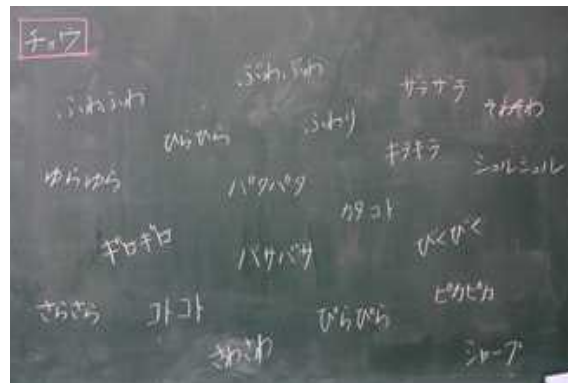 チョウ
ふわふわ
ぷわぷわ
ザラザラ
そわそわ
ひらひら
ふわり
キラキラ
シュルシュル
ゆらゆら
バタバタ
カタコト
ギロギロ
バサバサ
びくびく
さらさら
コトコト
ぴらぴら
ピカピカ
さわさわ
シャープ